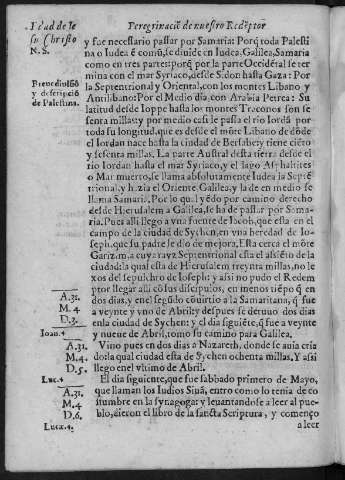 Edad de Je
su Christo
N. S.
Peregrinació de nuestro Redẽptor
y fue necessario passar por Samaria: Porq̃ toda Palesti
na o Iudea ẽ comũ, se diuide en Iudea, Galilea, Samaria
como en tres partes: porq̃ por la parte Occidẽtal se ter
mina con el mar Syriaco, desde Sidon hasta Gaza: Por
Breue diuisiõ
y descripció
de Palestina.
la Septentrional y Oriental, con los montes Libano y
Antilibano: Por el Medio dia, con Arabia Petrea: Su
latitud desde Ioppe hasta los montes Traconos son se
senta millas: y por medio casi le passa el rio Iordã por
toda su longitud, que es desde el mõte Libano de dõde
el Iordan nace hasta la ciudad de Bersabe: y tiene ciẽto
y sesenta millas. La parte Austral desta tierra desde el
rio Iordan hasta el mar Syriaco, y el lago Asphaltites
o Mar muerto, se llama absolutamente Iudea la Septẽ
trional, y hazia el Oriente, Galilea, y la de en medio se
llama Samaria. Por lo qual yẽdo por camino derecho
desde Hierusalem a Galilea, se ha de passar por Sama-
ria. Pues alli llego a vna fuente de Iacob, que esta en el
campo de la ciudad de Sychen, en vna heredad de Io-
seph, que su padre le dio de mejora, Esta cerca el mõte
Garizim, a cuya rayz Septentrional esta el assiẽto de la
ciudad: la qual esta de Hierusalem treynta millas, no le
xos del sepulchro de Ioseph: y assi no pudo el Redem
ptor llegar alli cõ sus discipulos, en menos tiẽpo q̃ en
A. 31.
M. 4
D. 3.
dos dias, y en el segũdo cõuirtio a la Samaritana, q̃ fue
a veynte y vno de Abril: y despues se detuuo dos dias
en la ciudad de Sychen: y el dia siguiẽte, q̃ fue a veynte
Ioan. 4
y nueue de Abril, tomo su camino para Galilea.
A. 31.
M. 4.
D. 5.
Vino pues en dos dias a Nazareth, donde se auia cria
do: la qual ciudad esta de Sychen ochenta millas. Y assi
llego en el vltimo de Abril.
Luc. 4
El dia siguiente, que fue sabbado primero de Mayo,
A. 31.
M. 4
D. 6.
que llaman los Iudios Siuã, entro como lo tenia de co
stumbre en la synagoga: y leuantandose a leer al pue-
Luca. 4.
blo, dieron el libro de la sancta Scriptura, y començo
a leer